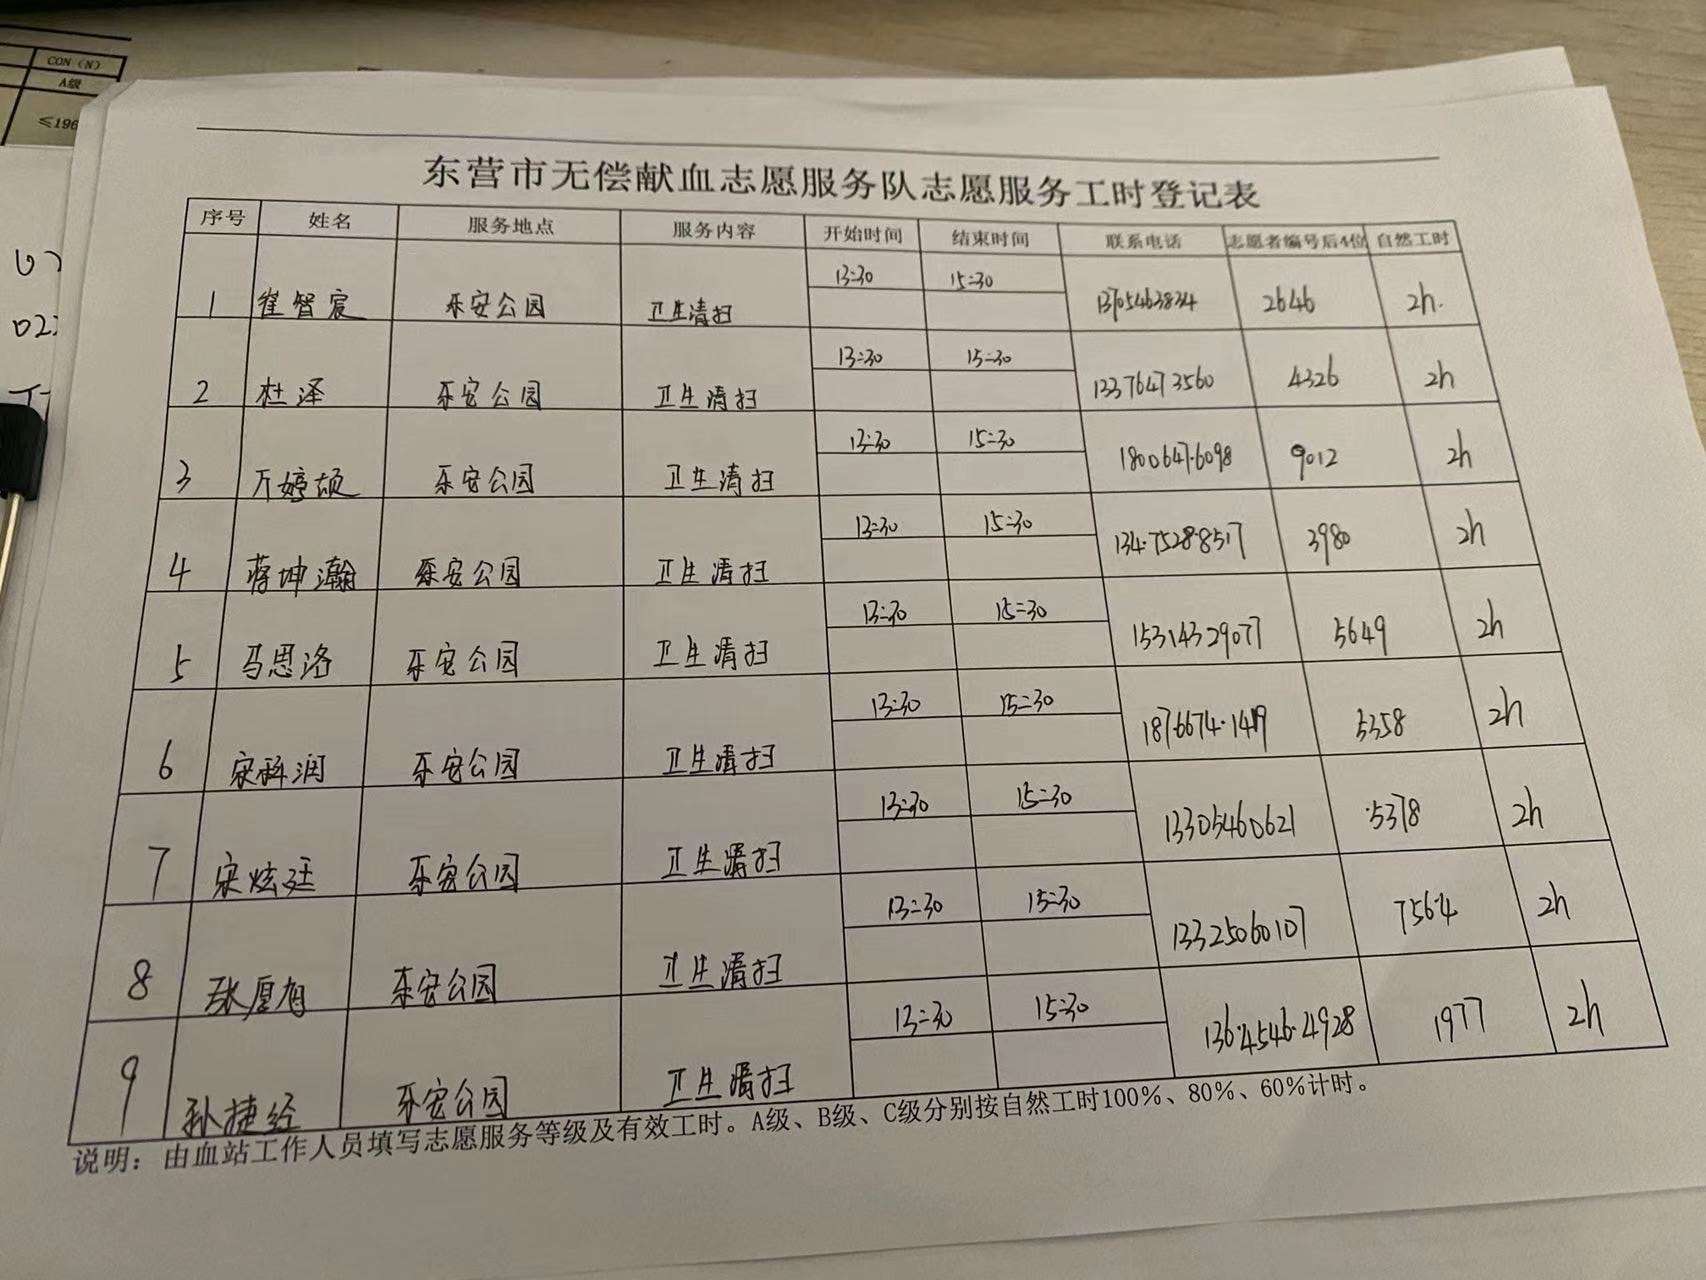 CON（N）
A级
≤196
东营市无偿献血志愿服务队志愿服务工时登记表
序号 姓名 服务地点 服务内容 开始时间 结束时间 联系电话 志愿者编号后4位 自然工时
1 崔智宸 乐安公园 卫生清扫 13:30 15:30 13705463834 2646 2h.
2 杜泽 乐安公园 卫生清扫 13:30 15:30 13376473560 4326 2h
3 婷颉 乐安公园 卫生清扫 13:30 15:30 1800647·6098 9012 2h
4 蒋坤瀚 乐安公园 卫生清扫 13:30 15:30 134·7528·8517 3980 2h
5 马思洛 乐安公园 卫生清扫 13:30 15:30 15314329077 5649 2h
6 宋科润 乐安公园 卫生清扫 13:30 15:30 187·6674·1419 5358 2h
7 宋炫廷 乐安公园 卫生清扫 13:30 15:30 13305460621 5378 2h
8 张厚旭 乐安公园 卫生清扫 13:30 15:30 13325060107 7564 2h
9 孙捷经 乐安公园 卫生清扫 13:30 15:30 136·4546·4928 1977 2h
说明：由血站工作人员填写志愿服务等级及有效工时。A级、B级、C级分别按自然工时100%、80%、60%计时。